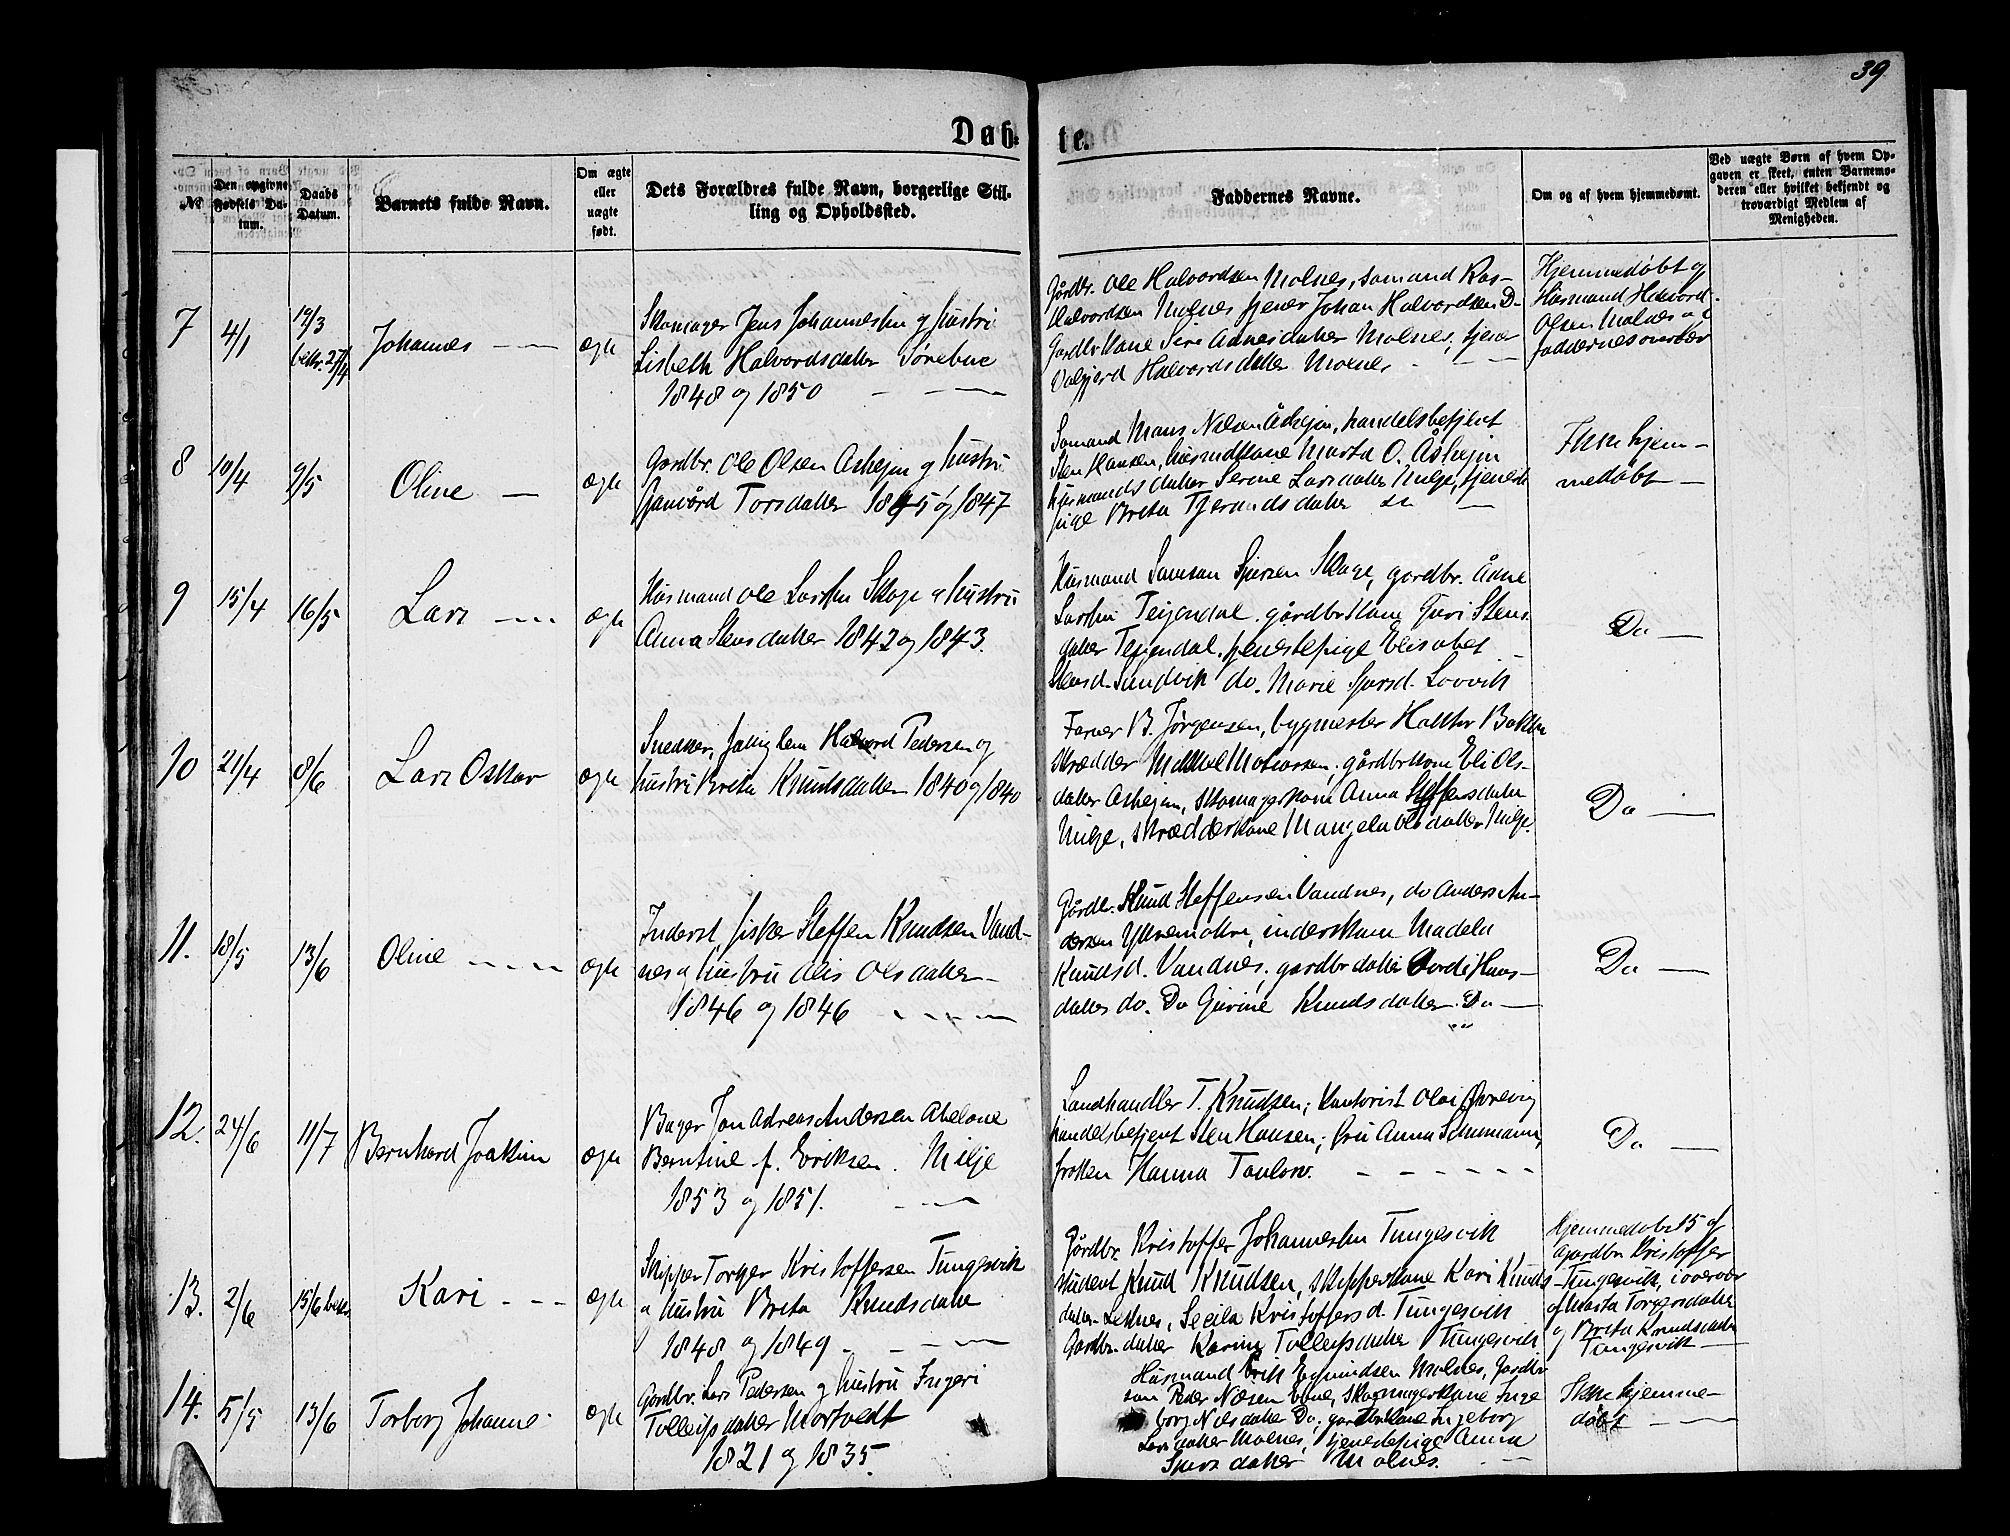 39
Døb-
te.
№
Den opgivne Fødsels Da-
tum.
Daabs Datum.
Barnets fulde Navn.
Om ægte eller uægte født.
Dets Forældres fulde Navn, borgerlige Stil-
ling og Opholdssted.
Faddernes Navne.
Om og af hvem hjemmedømt.
Ved uægte Børn af hvem Op-
gaven er skeet, enten Barnemo-
deren eller hvilket bekjendt og
troværdigt Medlem af
Menigheden.
7
4/1
12/3
bekr. 27/4
Johannes
ægte
Skomager Jens Johannessen og hustru
Lisbeth Halvordsdatter Sørebue
1848 og 1850
Gårdbr. Ole Halvordsen Molnes, sømand Ras-
Halvordsen Molnes tjener Johan Halvordsen D-
Gårdbr kone Siri Adnesdatter Molnes, tjener
Valgjerd Halvordsdatter Molnes
Hjemmedøbt af
Husmand Halvord
Olsen Molnes i
faddernes overvær
8
10/4
9/5
Oline
ægte
Gårdbr. Ole Olsen Ashejm og hustru
Torsdatter 1845 og 1847
Sømand Mons Nilsen Åshejm, handelsbetjent
Sten Hansen, husmdkone Marta O. Åshejm
husmandsdatter Serine Larsdatter Milje, tjeneste
pige Brita Tjerandsdatter
Ikke hjem-
medøbt
9
15/4
16/5
Lars
ægte
Husmand Ole Larsen Skage og hustru
Anna Stensdatter 1842 og 1843.
Husmand Samson Sjursen Skage, gårdbr. Ådne
Larsen Tejgendal, gårdbrkone Guri Stens-
datter Tejgendal, tjenestepige Elisabet
Stensd. Sandvik do. Marie Sjursd. Lovvik
Do
10
21/4
8/6
Lars Oskar
ægte
Snedker, fattiglem Halvord Pedersen og
hustru Brita Knudsdatter 1840 og 1840
Farver B. Jørgensen, bygmester Bakke
skrædder Mikkel gårdbrkone Eli Ols-
datter Ashejm, skomagerkone Anna Steffensdatter
Milje, skrædderkone Olsdatter Milje
Do
11.
18/5
13/6
Oline
ægte
Inderst, fisker Steffen Knudsen Vand-
nes og hustru Olis Olsdatter
1846 og 1846
Gårdbr. Knud Steffensen Vandnes, do Anders An-
dersen inderstkone Madela
Knudsd. Vandnes, gardbr datter Hans-
datter do. Do Gurine Knudsdatter Do
Do
12.
24/6
11/7
Bernhard Joakim
ægte
Bager Jon Adreas Andersen Abelone
Berntine f. Eriksen. Milje
1853 og 1851.
Landhandler T. Knudsen; Kontorist Olai
handelsbetjent Sten Hansen; fru Anna Schumann,
frøken Hanna Taulow.
Do
13.
2/6
15/6 bekr.
Kari
ægte
Skipper Torger Kristoffersen Tungesvik
og hustru Brita Knudsdatter
1848 og 1849
Gårdbr. Kristoffer Johannesen Tungesvik
student Knud Knudsen, skipperkone Kari Knuds-
datter Leknes, Secila Kristoffersd. Tungesvik
Gardbr. datter Karina Tolleifsdatter Tungesvik
Hjemmedøbt 5 af
gardbr Kristoffer
Tungesvik, i overvær
af Marta Torgersdatter
og Brita Knudsdatter
Tungesvik
14.
5/5
13/6
Torborg Johanne
ægte
Gardbr. Lars Pedersen og hustru Ingeri
Tolleifsdatter Mortvedt
1821 og 1835.
Husmand Erik Egmundsen Molnes, Gardbr
søn Peder Nilsen Ebne, skomagerkone Inge
borg Nilsdatter Do; gardbrkone Ingeborg
Larsdatter Molnes, tjenestepige Anna
Sjursdatter Molnes.
Ikke hjemme-
døbt